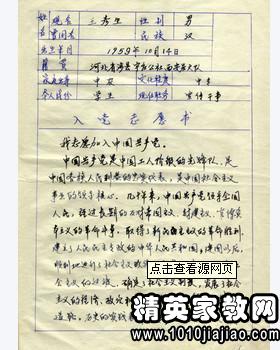 姓名 王秀生 性别 男
曾用名 民族 汉
出生年月 1959年10月14日
籍贯 河北省
家庭出身 中农 文化程度 中专
个人成份 学生 现任职务 宣传干事
入党志愿书
我志愿加入中国共产党。
中国共产党是中国工人阶级的先锋队，是
中国各族人民利益的忠实代表，是中国社会主义
事业的领导核心。几十年来，中国共产党领导全国
人民，经过长期的反对帝国主义、封建主义、官僚资
本主义的革命斗争，取得了新民主主义革命的胜利，
建立了人民民主专政的中华人民共和国；建国以后，
顺利地进行了社会主义改造
会主义的过渡，确立了社会主义制度，发展了社
会主义的经济、政治和
点击查看源网页
精英家教网
www.1010jiajiao.com